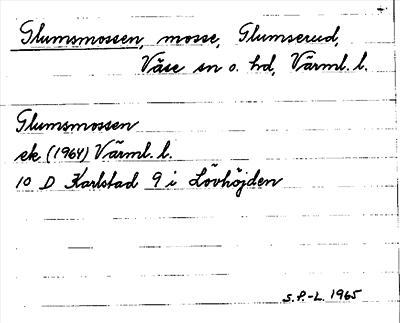 Glumsmossen, mosse, Glumserud,
Väse sn o. hd, Värml. l.
Glumsmossen
ek (1964) Värml. l.
10 D Karlstad 9 i Lövhöjden
S.P.-L. 1965